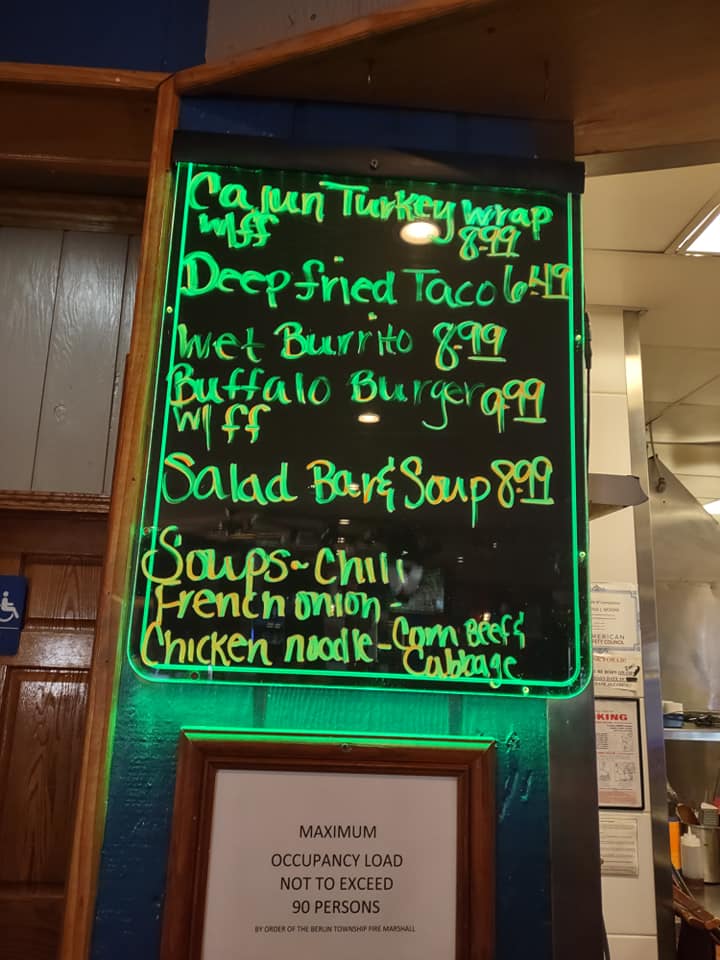 Cajun Turkey Wrap
w/ff 8.99
Deep fried Taco 6.49
Wet Burrito 8.99
Buffalo Burger 9.99
w/ ff
Salad Bar & Soup 8.99
Soups~Chili
French onion-
Chicken noodle-Corn Beef &
Cabbage
MAXIMUM
OCCUPANCY LOAD
NOT TO EXCEED
90 PERSONS
BY ORDER OF THE BERLIN TOWNSHIP FIRE MARSHALL
MERICAN
COUNCIL
KING